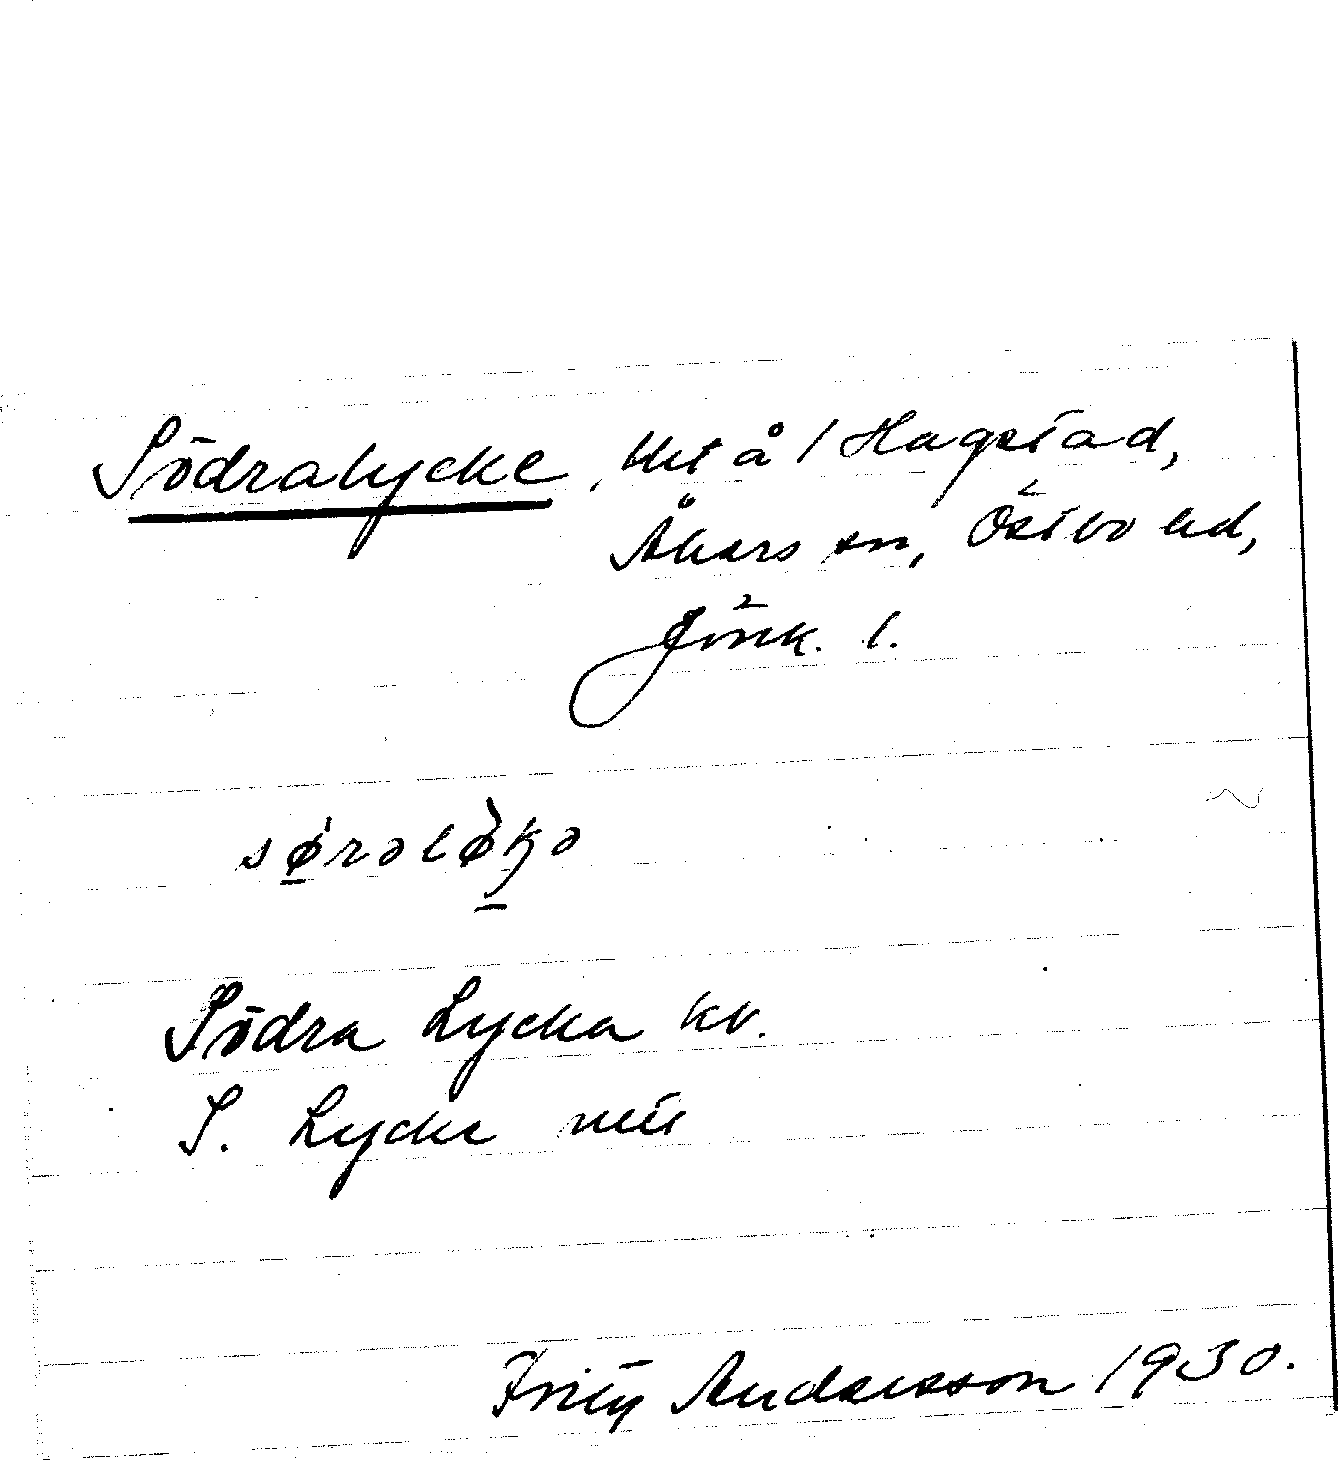 Södralycke, Utå 1 Hagstad,
Åkers sn, Östbo hd,
Jönk. l.
sørəløkə
Södra Lycka kv.
S. Lycke
Fritz Andersson 1930.